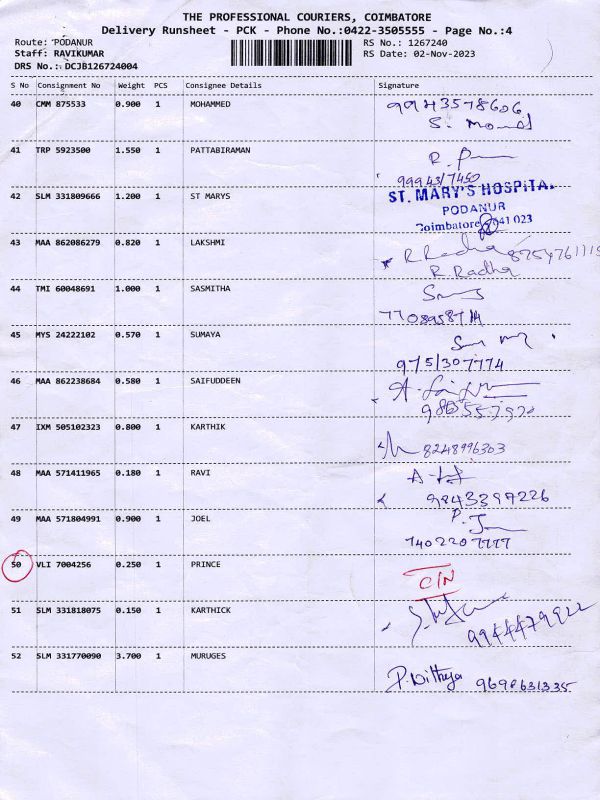 THE PROFESSIONAL COURIERS, COIMBATORE
Delivery Runsheet - PCK - Phone No.:0422-3505555 - Page No.:4
Route: PODANUR RS No.: 1267240
Staff: RAVIKUMAR RS Date: 02-Nov-2023
DRS No.: DCJB126724004
S No Consignment No Weight PCS Consignee Details Signature
40 CMM 875533 0.900 1 MOHAMMED 9943578606
41 TRP 5923500 1.550 1 PATTABIRAMAN
9994317450
42 SLM 331809666 1.200 1 ST MARYS ST. MARY'S HOSPITAL
PODANUR
Coimbatore
43 MAA 862086279 0.820 1 LAKSHMI R. Radha
R Radha
44 TMI 60048691 1.000 1 SASMITHA
45 MYS 24222102 0.570 1 SUMAYA
9751307774
46 MAA 862238684 0.580 1 SAIFUDDEEN
47 IXM 505102323 0.800 1 KARTHIK
8248996303
48 MAA 571411965 0.180 1 RAVI
9843397226
49 MAA 571804991 0.900 1 JOEL
7402207777
50 VLI 7004256 0.250 1 PRINCE
51 SLM 331818075 0.150 1 KARTHICK
9944479922
52 SLM 331770090 3.700 1 MURUGES P. Withya 9698631335